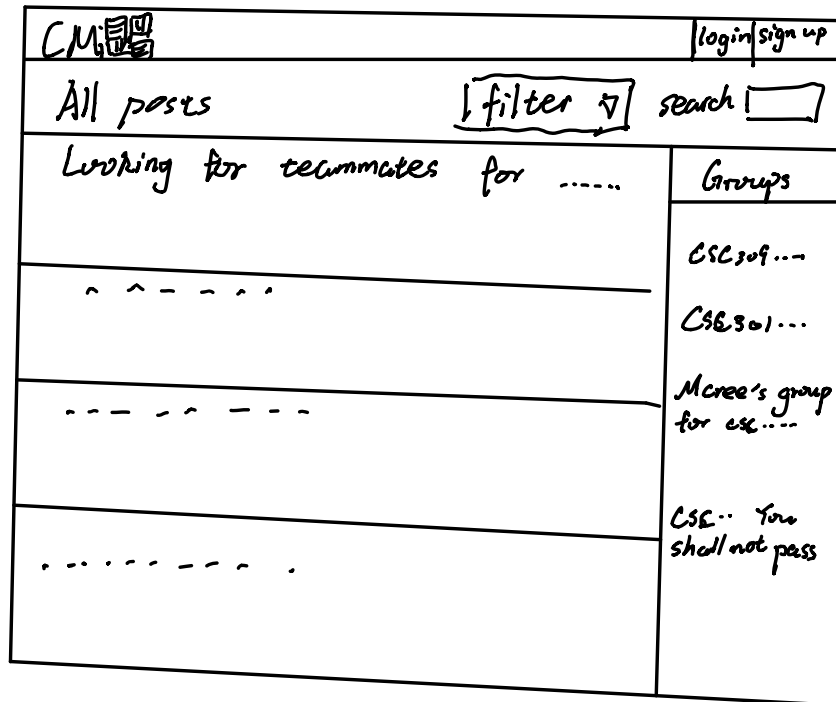 CMi
login sign up
All posts
filter
search
Looking for teammates for ......
Groups
CSC309....
CSC301...
Mcree's group
for csc.....
CSC.. You
shall not pass